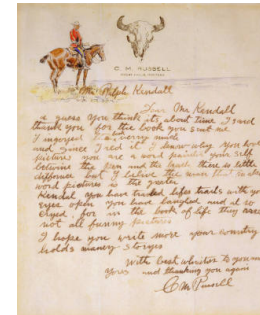 C. M. RUSSELL
GREAT FALLS, MONTANA
Mr Ralph Kendall
Dear Mr Kendall
I guess you think its about time I
thank you for the book you sent me
I injoyed it verry much
and since I red it I know why you
pictures you are a word painter your self
betwine the pen and the brush there is little
diffrence but I belive the man that
word pictures is the greater
Kendal you have life trails with your
eyes open you have laughed and al so
cryed for in the book of life they are
not all funny pictures
I hope you write more your country
holds maney storyes
With best whishes to you
yores and thanking you again
C M Russell